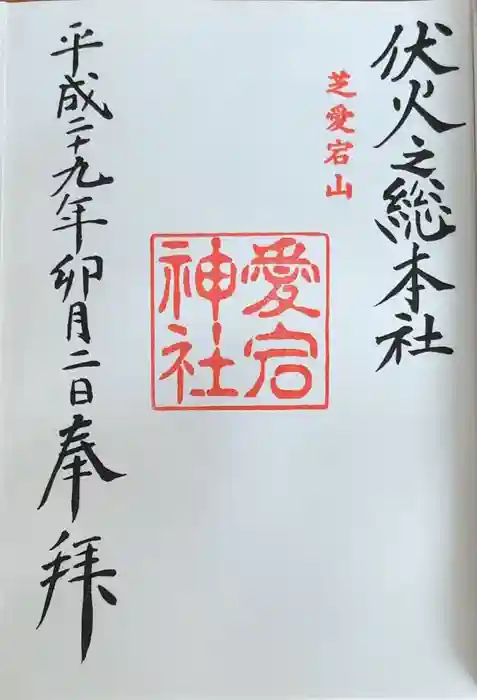 伏火之総本社
芝愛宕山
愛宕
神社
平成二十九年卯月二日奉拝